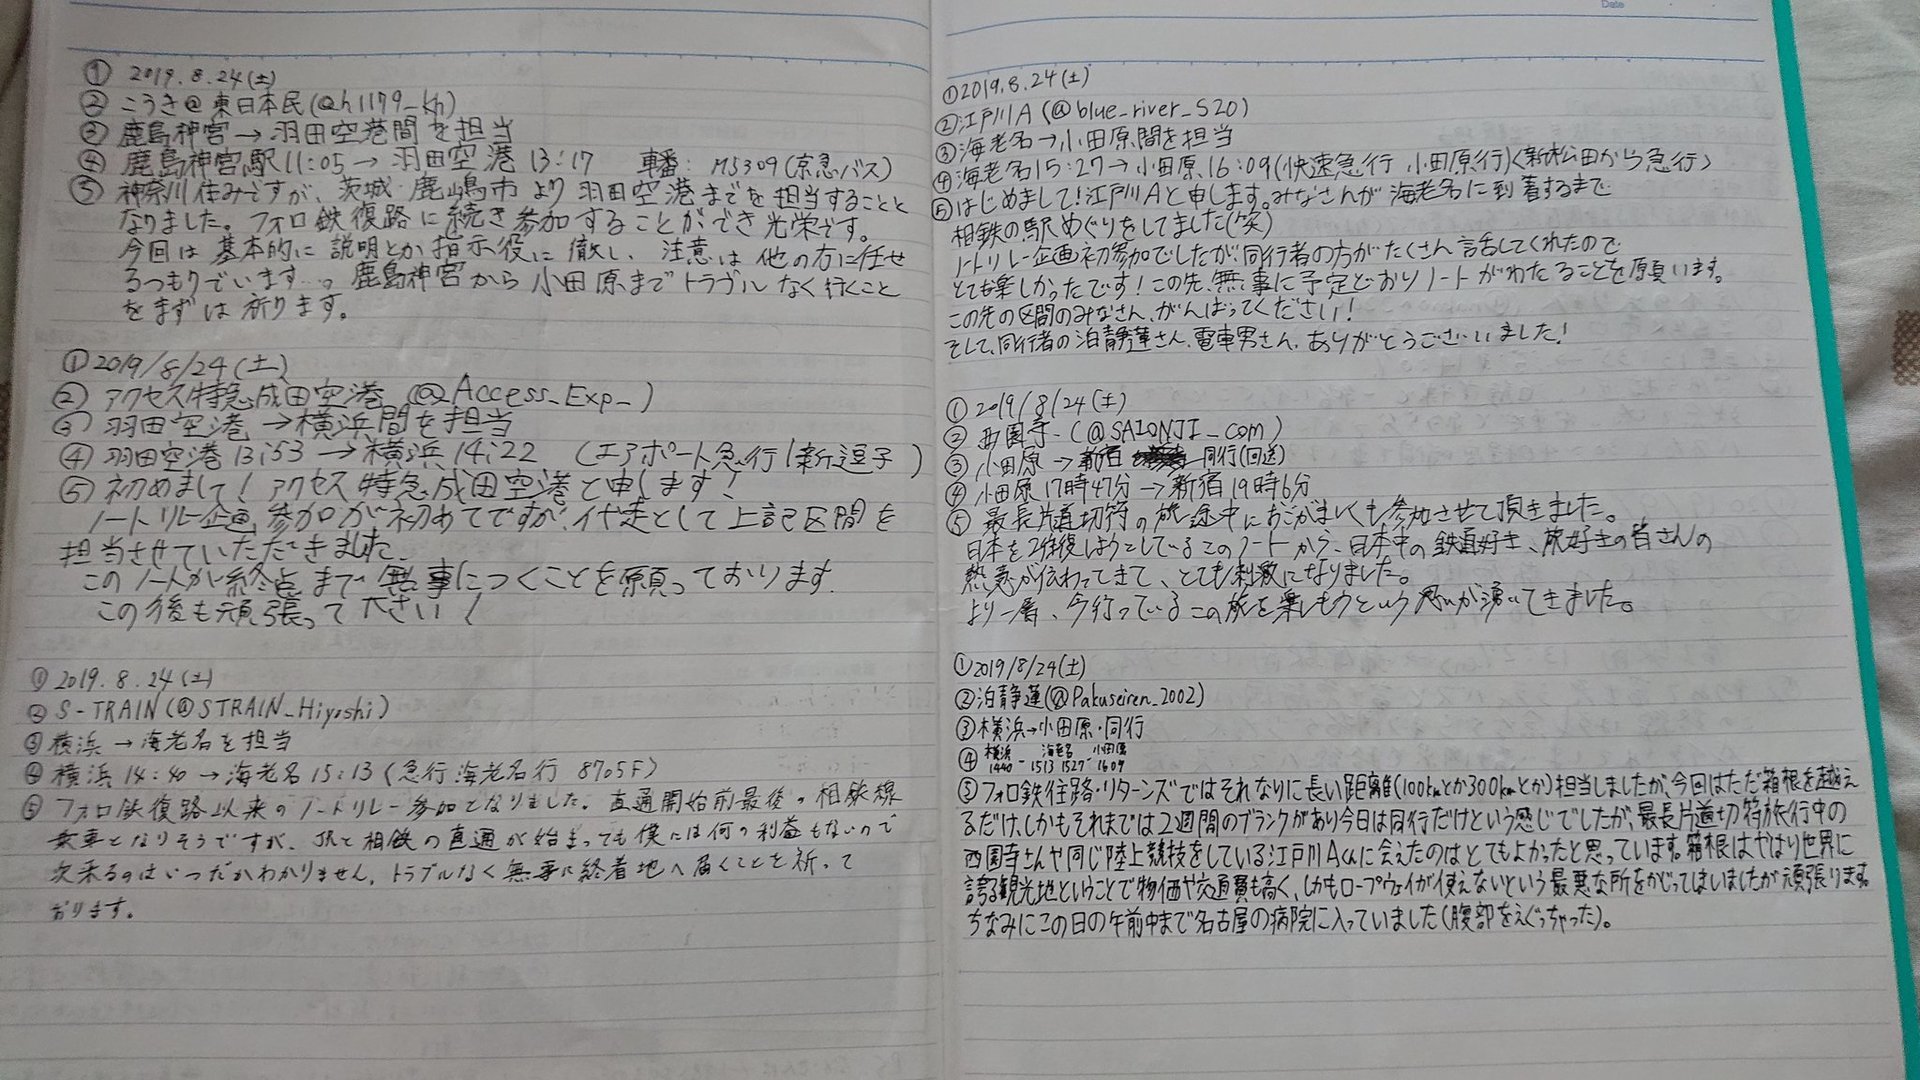 ① 2019.8.24(土)
② こうき@東日本民(@h1179_kh)
③ 鹿島神宮→羽田空港間を担当
④ 鹿島神宮駅11:05→羽田空港13:17 車番:M5309(京急バス)
⑤ 神奈川住みですが、茨城・鹿嶋市より羽田空港までを担当することと
なりました。フォロ鉄復路に続き参加することができ光栄です。
今回は基本的に説明とか指示役に徹し、注意は他の方に任せ
るつもりでいます…。鹿島神宮から小田原までトラブルなく行くこと
をまずは祈ります。
① 2019/8/24(土)
② アクセス特急成田空港 (@Access_Exp_)
③ 羽田空港→横浜間を担当
④ 羽田空港13:53→横浜14:22 (エアポート急行/新逗子)
⑤ 初めまして!アクセス特急成田空港と申します!
ノートリレー企画参加が初めてですが、代走として上記区間を
担当させていただきました。
このノートが終点まで無事につくことを願っております.
この後も頑張って下さい!
① 2019.8.24(土)
② S-TRAIN(@STRAIN_Hiyoshi)
③ 横浜→海老名を担当
④ 横浜14:40→海老名15:13(急行海老名行 8705F)
⑤ フォロ鉄復路以来のノートリレー参加となりました。直通開始前最後の相鉄線
乗車となりそうですが、JRと相鉄の直通が始まっても僕には何の利益もないので
次来るのはいつだかわかりません。トラブルなく無事に終着地へ届くことを祈って
おります。
Date
①2019.8.24(土)
②江戸川A(@blue_river_S20)
③海老名→小田原間を担当
④海老名15:27→小田原16:09(快速急行 小田原行)<新松田から急行>
⑤はじめまして!江戸川Aと申します。みなさんが海老名に到着するまで
相鉄の駅めぐりをしてました(笑)
ノートリレー企画初参加でしたが、同行者の方がたくさん話してくれたので
とても楽しかったです!この先、無事に予定どおりノートがわたることを願います。
この先の区間のみなさん、がんばってください!
そして、同行者の泊静蓮さん、電車男さん、ありがとうございました!
① 2019/8/24(土)
② 西園寺-(@SAIONJI_com)
③ 小田原→新宿 同行(回送)
④ 小田原17時47分→新宿19時6分
⑤ 最長片道切符の旅途中におこがましくも参加させて頂きました。
日本を2往復しようとしているこのノートから、日本中の鉄道好き、旅好きの皆さんの
熱意が伝わってきて、とても刺激になりました。
より一層、今行っているこの旅を楽しもうという思いが湧いてきました。
①2019/8/24(土)
②泊静蓮(@Pakuseiren_2002)
③横浜→小田原・同行
④横浜1440-海老名1513 1527-小田原1609
⑤フォロ鉄往路・リターンズではそれなりに長い距離(100kmとか300kmとか)担当しましたが、今回はただ箱根を越え
るだけ、しかもそれまでは2週間のブランクがあり今日は同行だけという感じでしたが、最長片道切符旅行中の
西園寺さんや同じ陸上競技をしている江戸川Aくんに会えたのはとてもよかったと思っています。箱根はやはり世界に
誇る観光地ということで物価や交通費も高く、しかもロープウェイが使えないという最悪な所をかじってはいましたが頑張ります。
ちなみにこの日の午前中まで名古屋の病院に入っていました(腹部をえぐっちゃった)。